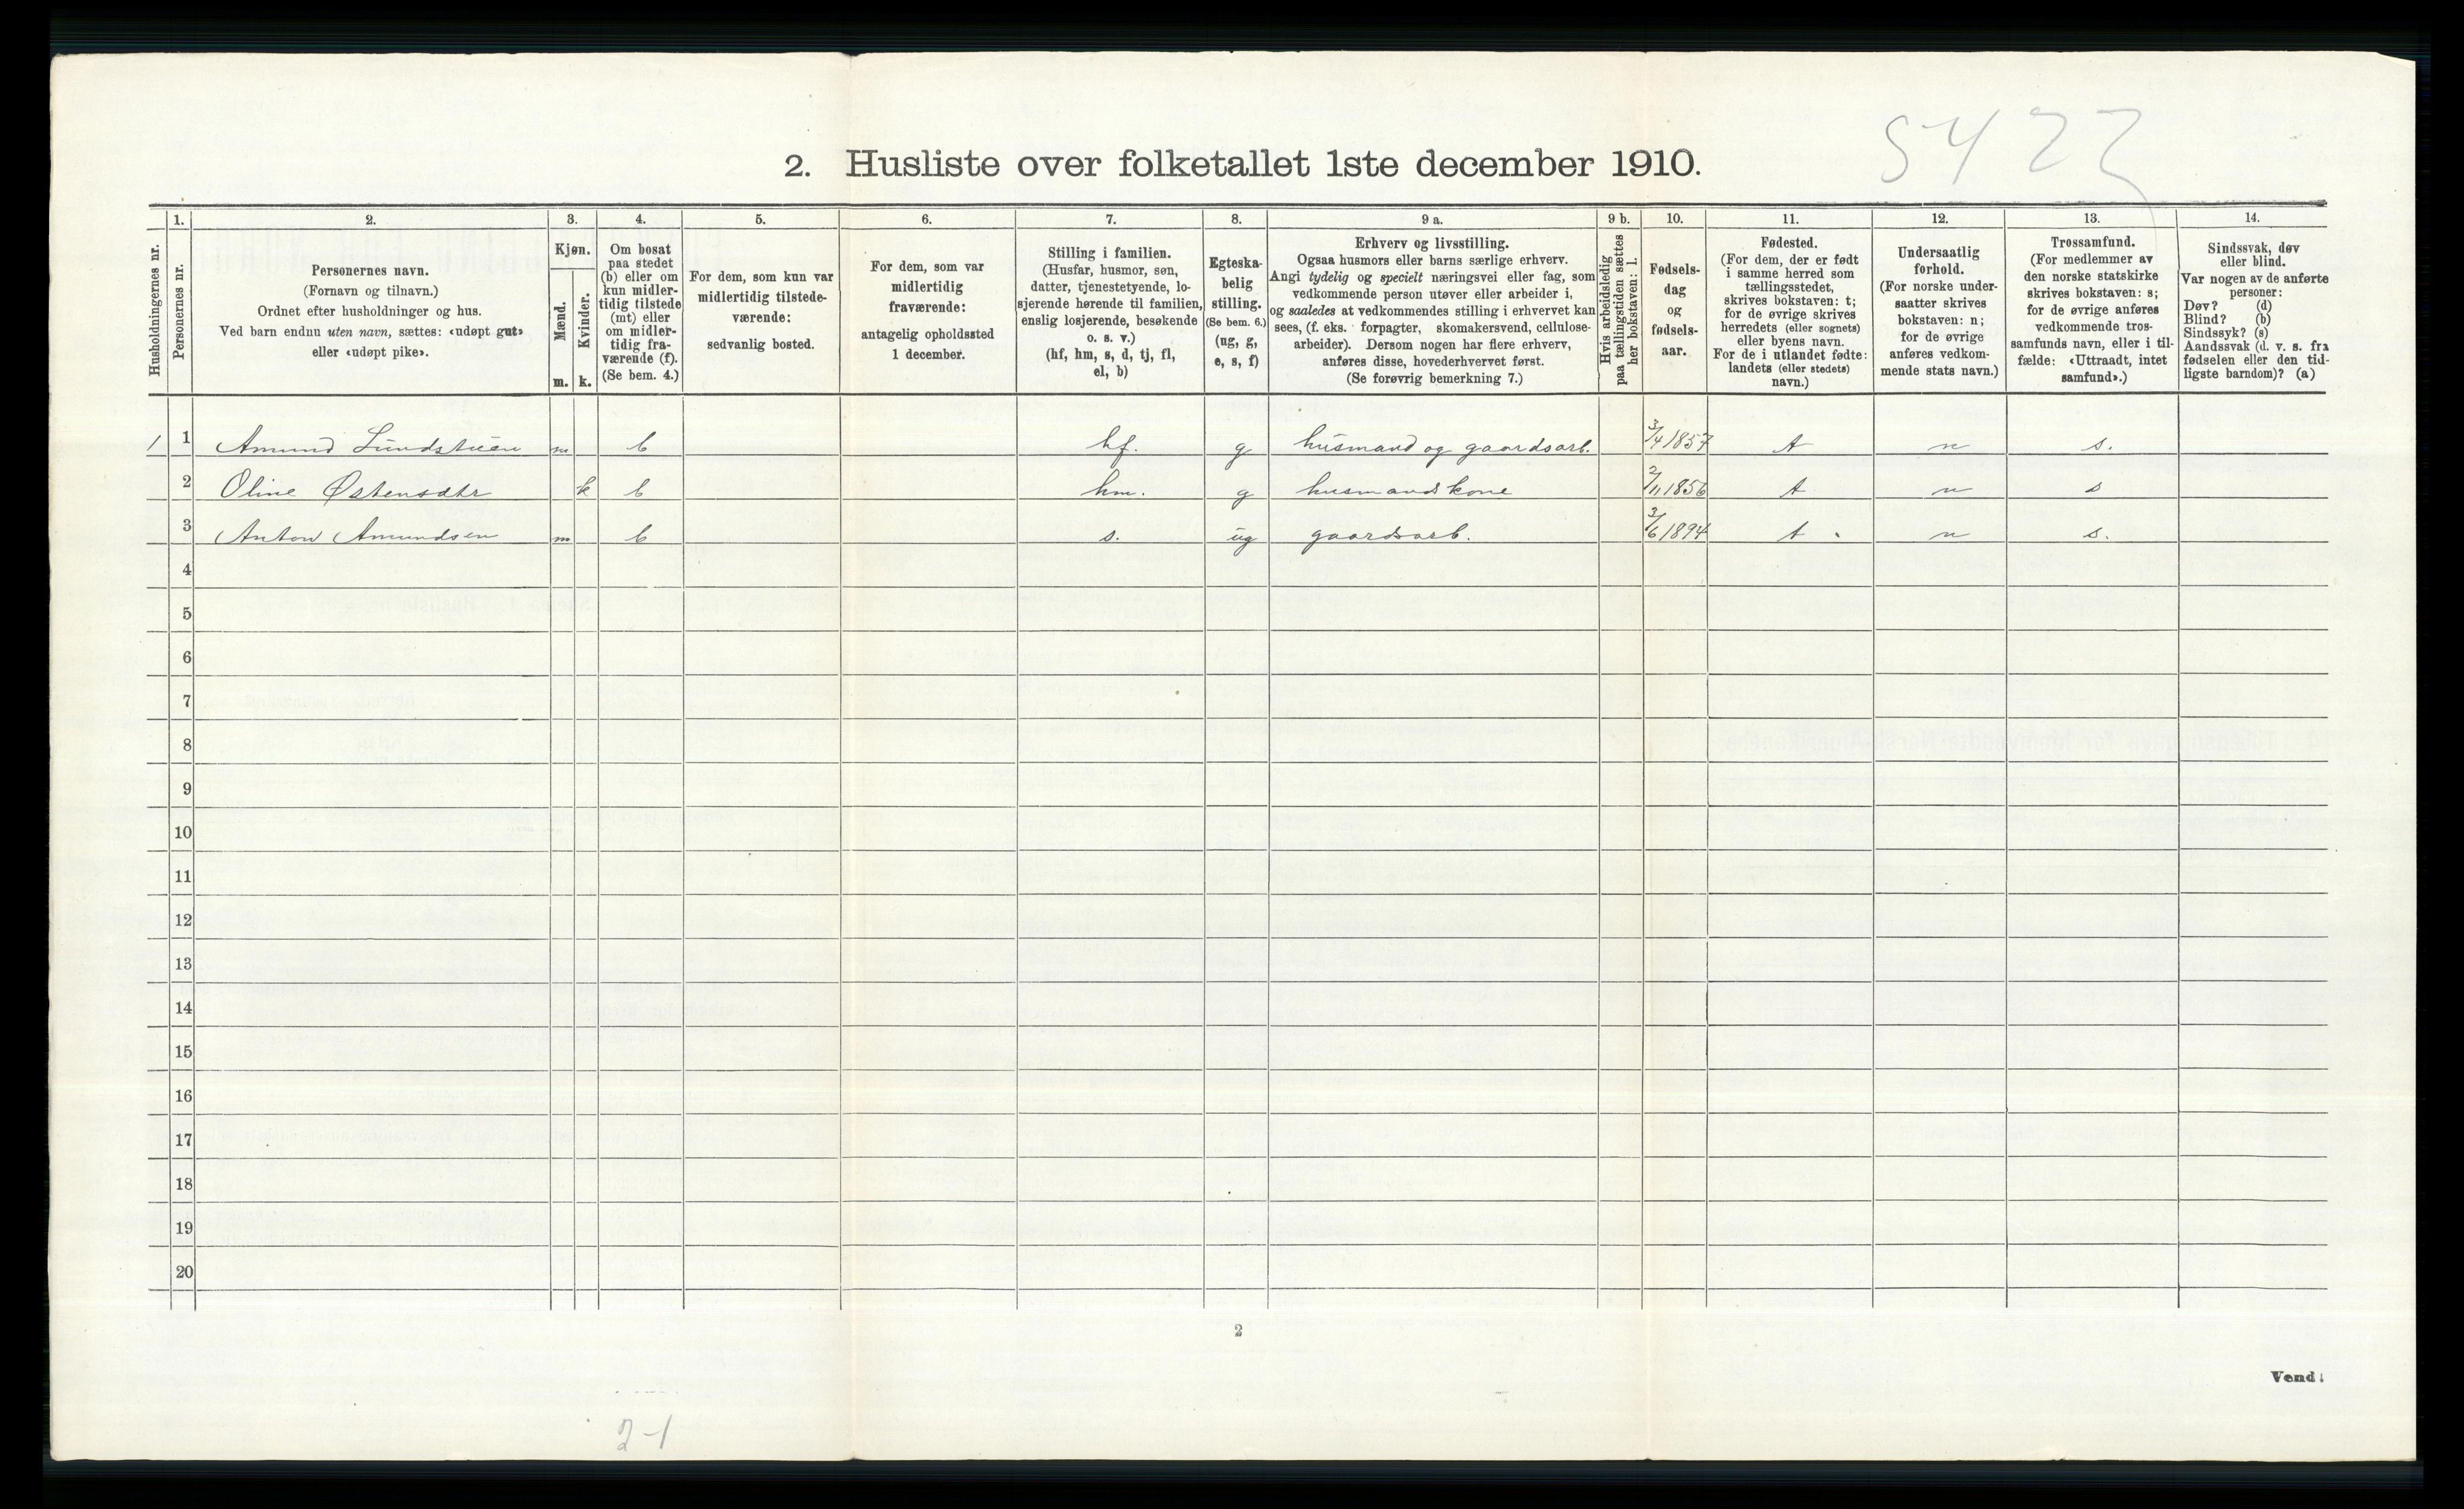 5422
2. Husliste over folketallet 1ste december 1910.
Husholdningernes nr.
1.
Personernes nr.
2.
Personernes navn.
(Fornavn og tilnavn.)
Ordnet efter husholdninger og hus.
Ved barn endnu uten navn, sættes: «udøpt gut»
eller «udøpt pike».
3.
Kjøn.
Mænd.
Kvinder.
m. k.
4.
Om bosat
paa stedet
(b) eller om
kun midler-
tidig tilstede
(mt) eller
om midler-
tidig fra-
værende (f).
(Se bem. 4.)
5.
For dem, som kun var
midlertidig tilstede-
værende:
sedvanlig bosted.
6.
For dem, som var
midlertidig
fraværende:
antagelig opholdssted
1 december.
7.
Stilling i familien.
(Husfar, husmor, søn,
datter, tjenestetyende, lo-
sjerende hørende til familien,
enslig losjerende, besøkende
o. s. v.)
(hf, hm, s, d, tj, fl,
el, b)
8.
Egteska-
belig
stilling.
(Se bem. 6.)
(ug, g,
e, s, f)
9 a.
Erhverv og livsstilling.
Ogsaa husmors eller barns særlige erhverv.
Angi tydelig og specielt næringsvei eller fag, som
vedkommende person utøver eller arbeider i,
og saaledes at vedkommendes stilling i erhvervet kan
sees, (f. eks. forpagter, skomakersvend, cellulose-
arbeider). Dersom nogen har flere erhverv,
anføres disse, hovederhvervet først.
(Se forøvrig bemerkning 7.)
9 b.
Hvis arbeidsledig
paa tællingstiden sættes
her bokstaven: l.
10.
Fødsels-
dag
og
fødsels-
aar.
11.
Fødested.
(For dem, der er født
i samme herred som
tællingsstedet,
skrives bokstaven: t;
for de øvrige skrives
herredets (eller sognets)
eller byens navn.
For de i utlandet fødte:
landets (eller stedets)
navn.)
12.
Undersaatlig
forhold.
(For norske under-
saatter skrives
bokstaven: n;
for de øvrige
anføres vedkom-
mende stats navn.)
13.
Trossamfund.
(For medlemmer av
den norske statskirke
skrives bokstaven: s;
for de øvrige anføres
vedkommende tros-
samfunds navn, eller i til-
fælde: «Uttraadt, intet
samfund».)
14.
Sindssvak, døv
eller blind.
Var nogen av de anførte
personer:
Døv? (d)
Blind? (b)
Sindssyk? (s)
Aandssvak (d. v. s. fra
fødselen eller den tid-
ligste barndom)? (a)
1 1 Amund Lundstuen m b hf. g husmand og gaardsarb. 3/4 1857 t n s.
2 Oline Østensdtr k b hm. g husmandskone 2/11 1856 t n s
3 Anton Amundsen m b s. ug gaardsarb. 3/6 1894 t n s.
4
5
6
7
8
9
10
11
12
13
14
15
16
17
18
19
20
2
Vend!
2-1